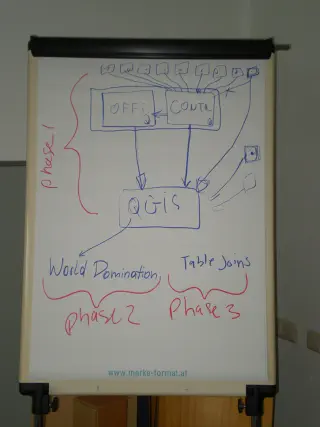 phase 1
OFFI
CONTR
QGIS
World Domination
Table Joins
phase 2
phase 3
www.marke-format.at